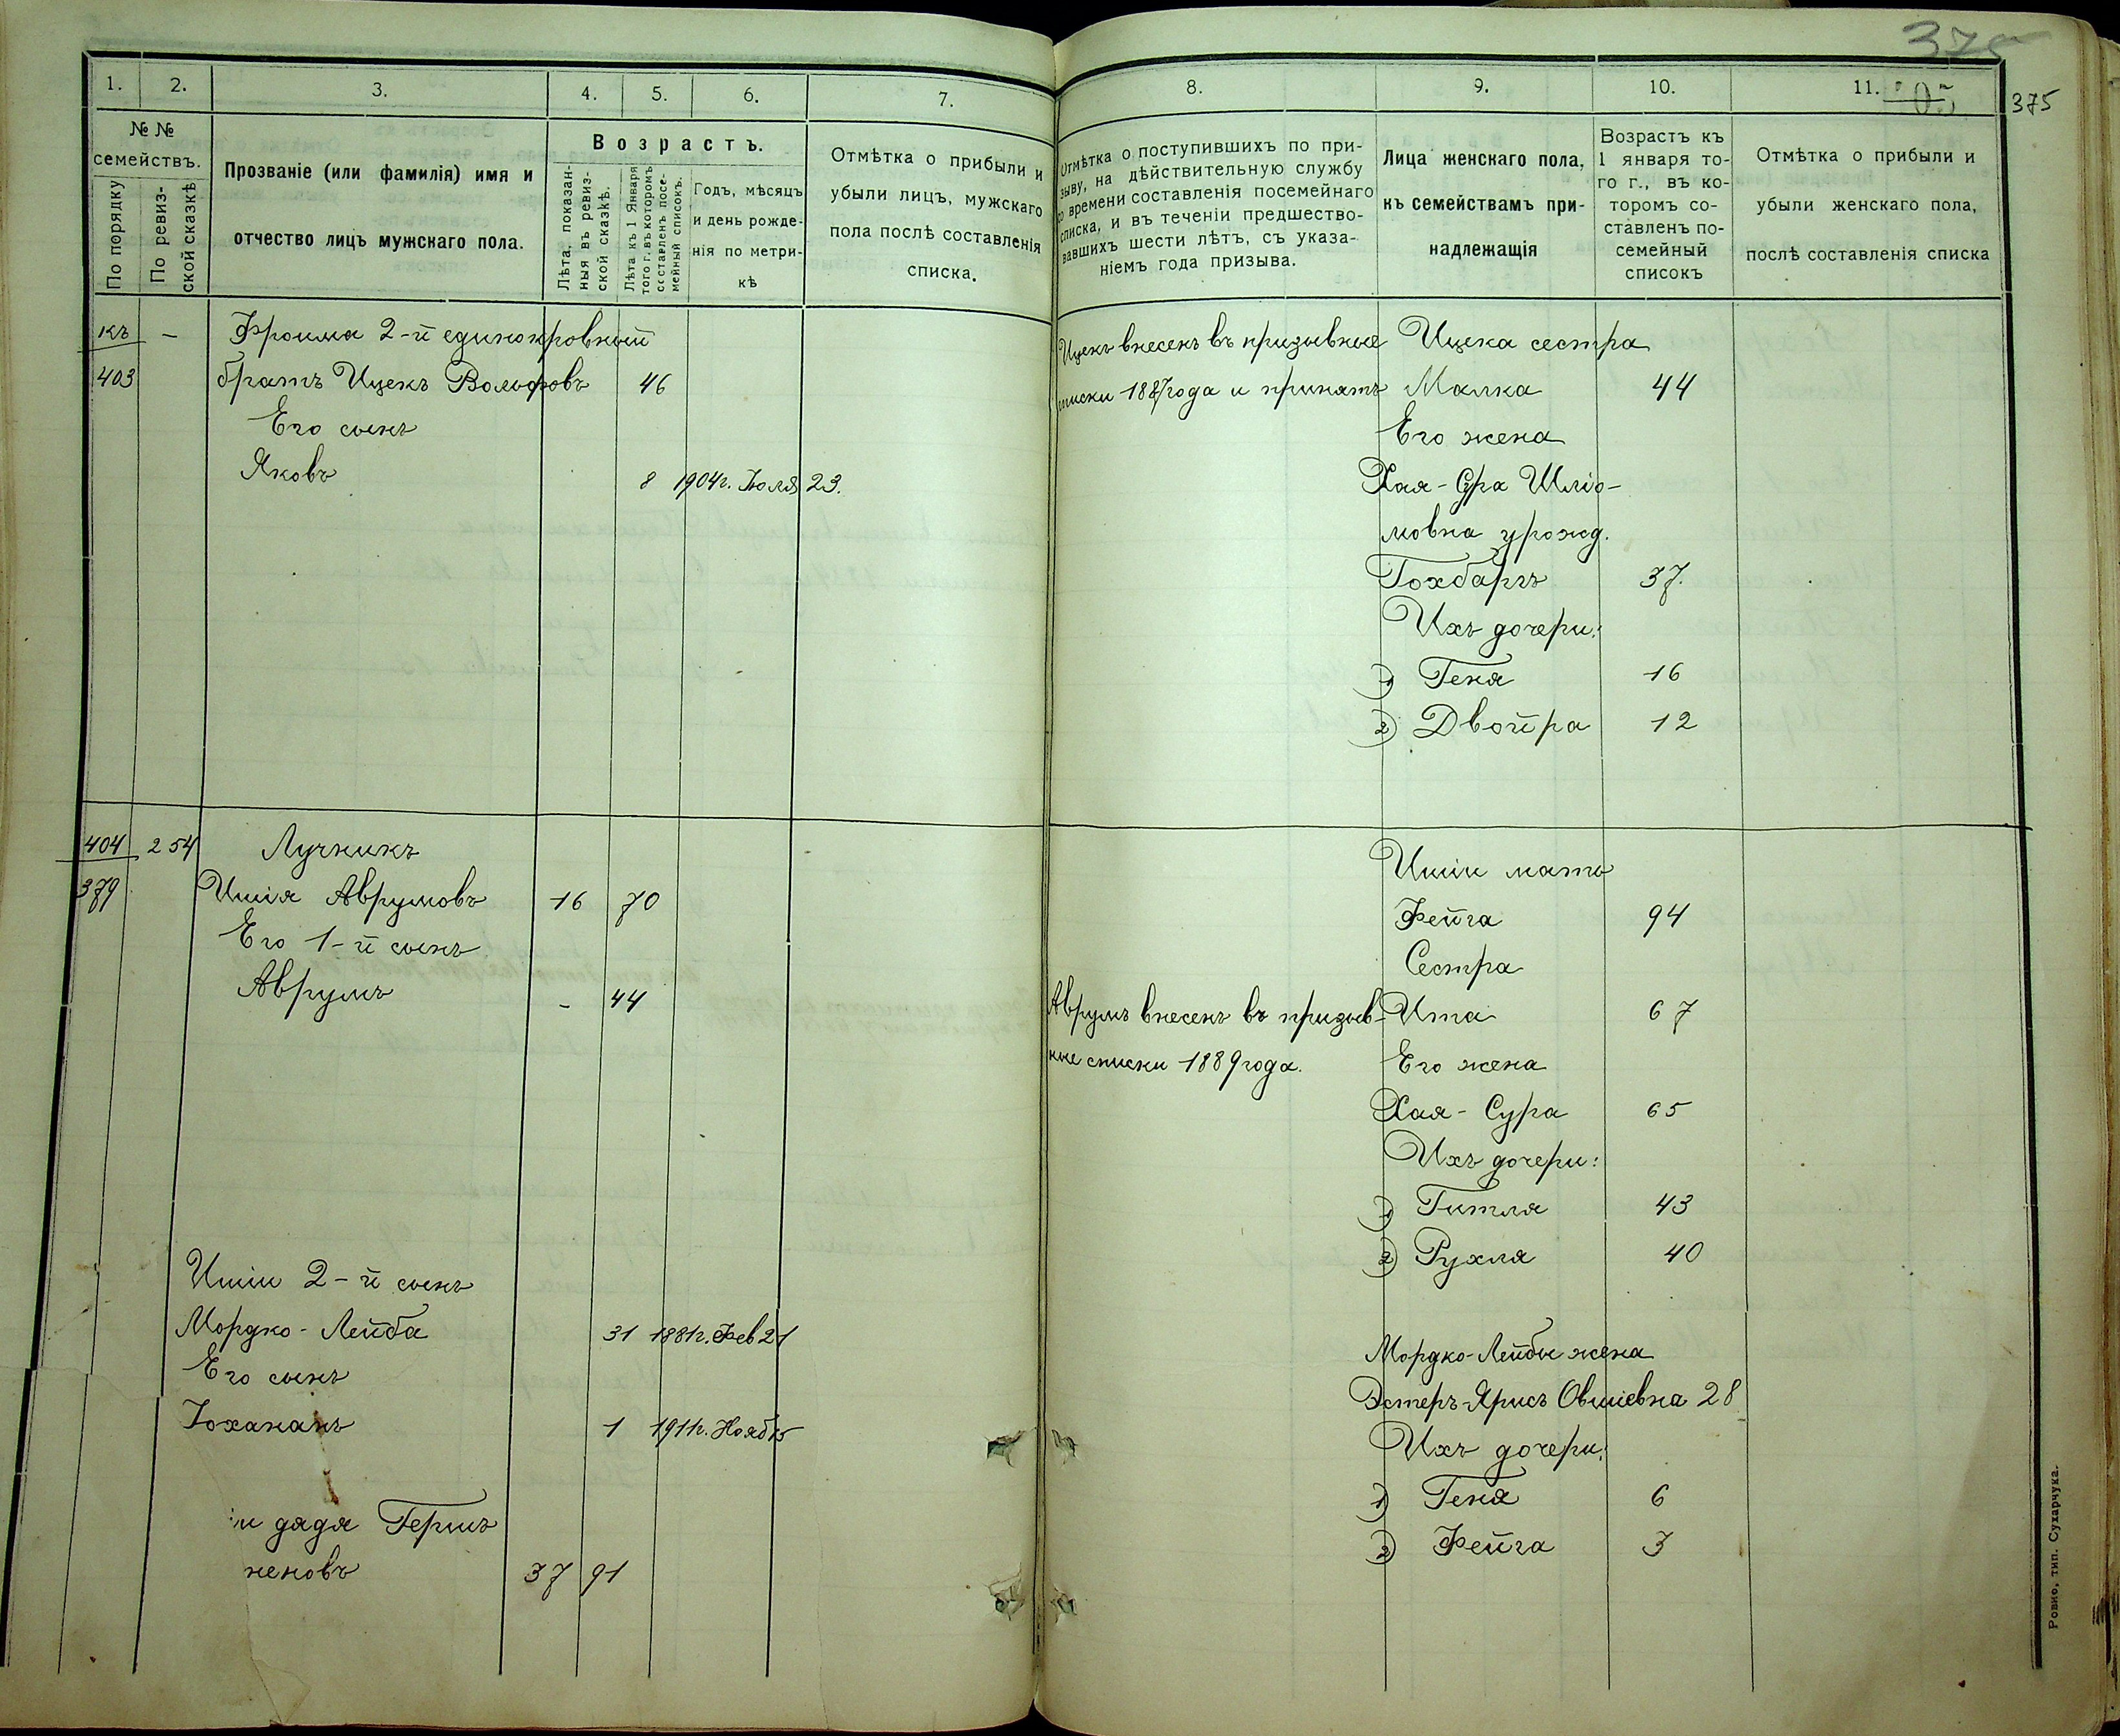 375
1. 2. 3. 4. 5. 6. 7.
№ № семействъ.
По порядку
По ревиз-
ской сказкѣ
Прозваніе (или фамилія) имя и
отчество лицъ мужскаго пола.
Возрастъ.
Лѣта, показан-
ныя въ ревиз-
ской сказкѣ.
Лѣта къ 1 Января
того г. въ которомъ
составленъ посе-
мейный списокъ.
Годъ, мѣсяцъ
и день рожде-
нія по метри-
кѣ
Отмѣтка о прибыли и
убыли лицъ, мужскаго
пола послѣ составленія
списка.
къ —
403
Фроима 2-й единокровный
братъ Ицекъ Вольфовъ 46
Его сынъ
Яковъ 8 1904г. Іюля 23.
404 254 Лучникъ
379 Ишія Аврумовъ 16 70
Его 1-й сынъ
Аврумъ - 44
Ишіи 2-й сынъ
Мордко-Лейба 31 1881г. Фев 21
Его сынъ
Іоханан 1 1911г. Нояб 15
и дядя Гершъ
неновъ 37 91
8. 9. 10. 11.
375
Отмѣтка о поступившихъ по при-
зыву, на дѣйствительную службу
со времени составленія посемейнаго
списка, и въ теченіи предшество-
вавшихъ шести лѣтъ, съ указа-
ніемъ года призыва.
Лица женскаго пола,
къ семействамъ при-
надлежащія
Возрастъ къ
1 января то-
го г., въ ко-
торомъ со-
ставленъ по-
семейный
списокъ
Отмѣтка о прибыли и
убыли женскаго пола,
послѣ составленія списка
Ицекъ внесенъ въ призывные Ицека сестра
списки 1887года и принятъ Малка 44
Его жена
Хая-Сура Шліо-
мовна урожд.
Гохбаргъ 37.
Ихъ дочери:
1) Геня 16
2) Двойра 12
Ишіи мать
Фейга 94
Сестра
Аврумъ внесенъ въ призыв- Ита 67
ные списки 1889года. Его жена
Хая-Сура 65
Ихъ дочери:
1) Гитля 43
2) Рухля 40
Мордко-Лейбы жена
Эстеръ-Ярисъ Овшіевна 28
Ихъ дочери:
1) Геня 6
2) Фейга 3
Ровно, тип. Сухарчука.